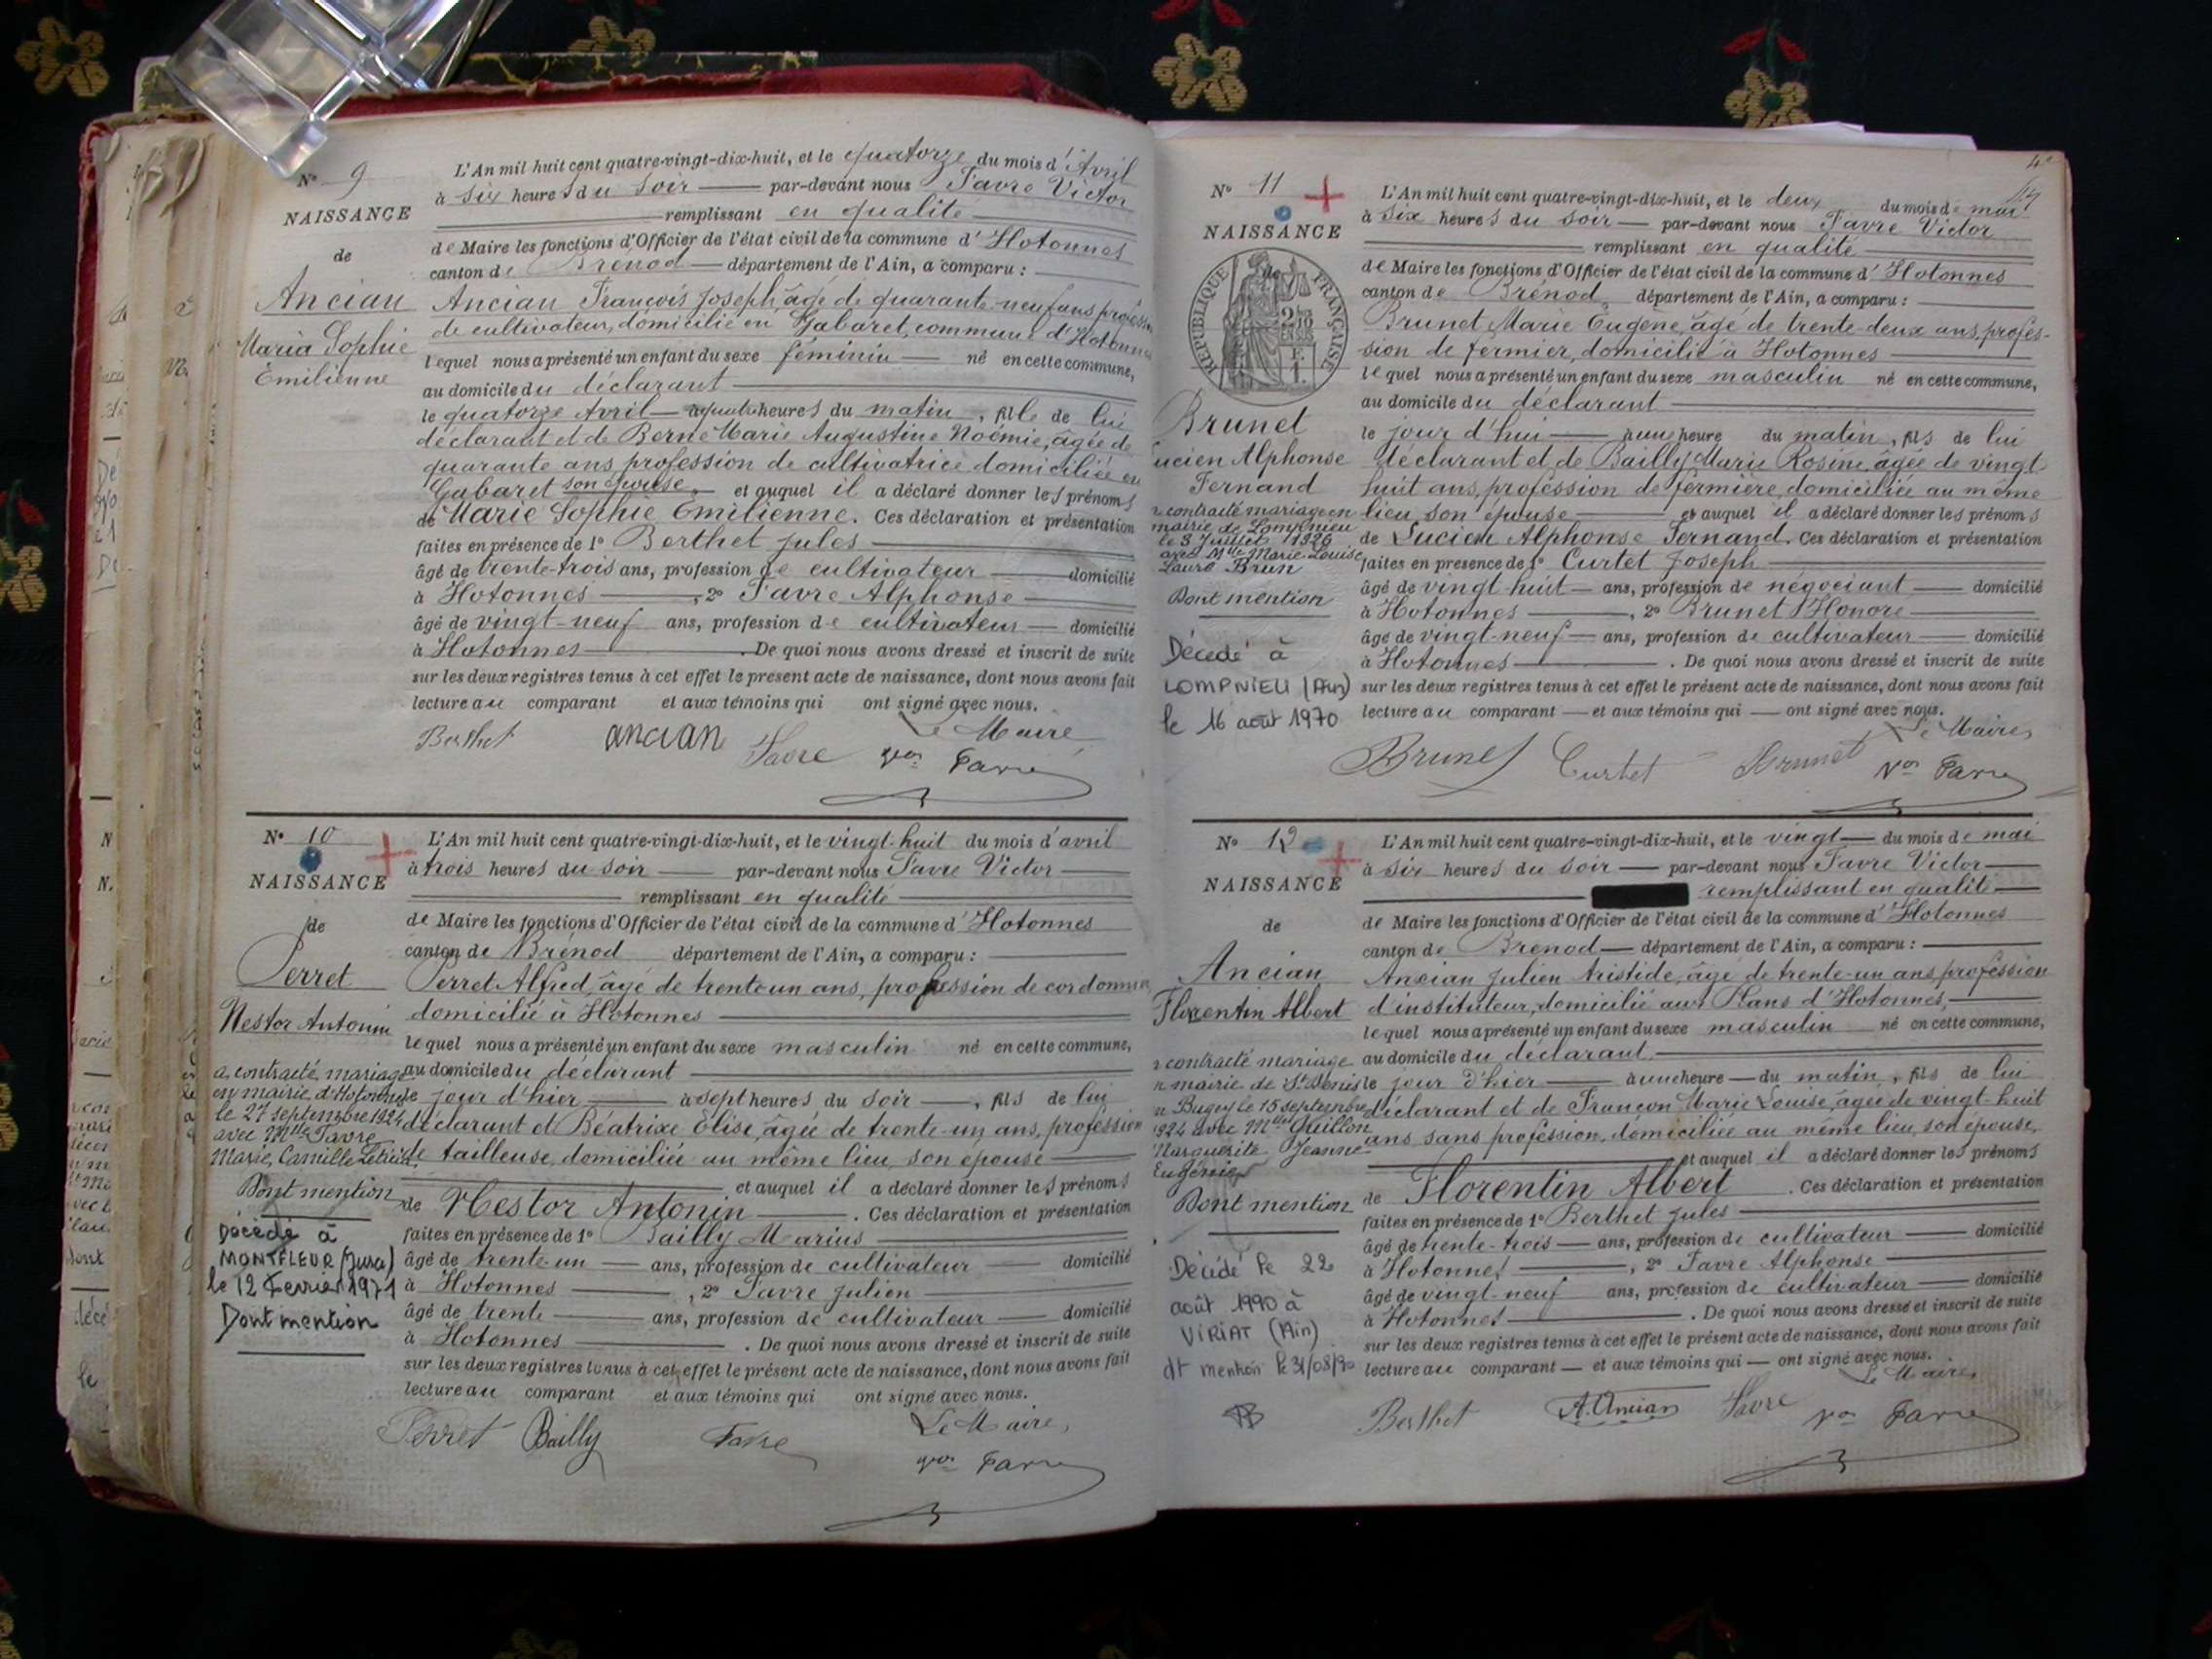 N° 9
NAISSANCE
de
Ancian
Maria Sophie
Émilienne
L'An mil huit cent quatre-vingt-dix-huit, et le quatorze du mois d'Avril
à six heures du soir — par-devant nous Favre Victor
remplissant en qualité
de Maire les fonctions d'Officier de l'état civil de la commune d'Hotonnes
canton de Brénod — département de l'Ain, a comparu :
Ancian François Joseph âgé de quarante-neuf ans profession
de cultivateur, domicilié en Gabaret, commune d'Hotonnes
lequel nous a présenté un enfant du sexe féminin — né en cette commune,
au domicile du déclarant
le quatorze Avril — à quatre heures du matin, fille de lui
déclarant et de Berne Marie Augustine Noémie, âgée de
quarante ans, profession de cultivatrice domiciliée en
Gabaret son épouse, et auquel il a déclaré donner les prénoms
de Marie Sophie Émilienne. Ces déclaration et présentation
faites en présence de 1° Berthet Jules
âgé de trente-trois ans, profession de cultivateur — domicilié
à Hotonnes —, 2° Favre Alphonse
âgé de vingt-neuf ans, profession de cultivateur — domicilié
à Hotonnes — . De quoi nous avons dressé et inscrit de suite
sur les deux registres tenus à cet effet le présent acte de naissance, dont nous avons fait
lecture au comparant et aux témoins qui ont signé avec nous.
Le Maire,
Berthet ancian Favre Vor Favre
N° 10
NAISSANCE
de
Perret
Nestor Antonin
a contracté mariage
en mairie d'Hotonnes
le 27 septembre 1924
avec Mlle Favre
Marie, Camille Leticia.
Dont mention
Décédé à
MONTFLEUR (Jura)
le 12 Fevrier 1971
Dont mention
L'An mil huit cent quatre-vingt-dix-huit, et le vingt-huit du mois d'avril
à trois heures du soir — par-devant nous Favre Victor
remplissant en qualité
de Maire les fonctions d'Officier de l'état civil de la commune d'Hotonnes
canton de Brénod département de l'Ain, a comparu :
Perret Alfred, âgé de trente un ans, profession de cordonnier
domicilié à Hotonnes
lequel nous a présenté un enfant du sexe masculin né en cette commune,
au domicile du déclarant
le jour d'hier — à sept heures du soir —, fils de lui
déclarant et Béatrixe Élise, âgée de trente-un ans, profession
de tailleuse, domiciliée au même lieu, son épouse
et auquel il a déclaré donner les prénoms
de Nestor Antonin — . Ces déclaration et présentation
faites en présence de 1° Bailly Marius
âgé de trente-un — ans, profession de cultivateur — domicilié
à Hotonnes —, 2° Favre Julien
âgé de trente — ans, profession de cultivateur — domicilié
à Hotonnes — . De quoi nous avons dressé et inscrit de suite
sur les deux registres tenus à cet effet le présent acte de naissance, dont nous avons fait
lecture au comparant et aux témoins qui ont signé avec nous.
Le Maire,
Perret Bailly Favre Vor Favre
N° 11
NAISSANCE
de
RÉPUBLIQUE FRANÇAISE
Brunet
ucien Alphonse
Fernand
a contracté mariage en
mairie de Lompnieu
le 3 Juillet 1926
avec Mlle Marie Louise
Laure Brun
Dont mention
Décédé à
LOMPNIEU (Ain)
le 16 août 1970
L'An mil huit cent quatre-vingt-dix-huit, et le deux du mois de mai
à six heures du soir — par-devant nous Favre Victor
remplissant en qualité
de Maire les fonctions d'Officier de l'état civil de la commune d'Hotonnes
canton de Brénod, département de l'Ain, a comparu :
Brunet Marie Eugène, âgé de trente-deux ans, profes-
sion de fermier, domicilié à Hotonnes
lequel nous a présenté un enfant du sexe masculin né en cette commune,
au domicile du déclarant
le jour d'hui — à une heure du matin, fils de lui
déclarant et de Bailly Marie Rosine âgée de vingt
huit ans, profession de fermière, domiciliée au même
lieu, son épouse — et auquel il a déclaré donner les prénoms
de Lucien Alphonse Fernand. Ces déclaration et présentation
faites en présence de 1° Curtet Joseph
âgé de vingt-huit — ans, profession de négociant — domicilié
à Hotonnes —, 2° Brunet Honoré
âgé de vingt-neuf — ans, profession de cultivateur — domicilié
à Hotonnes — . De quoi nous avons dressé et inscrit de suite
sur les deux registres tenus à cet effet le présent acte de naissance, dont nous avons fait
lecture au comparant — et aux témoins qui — ont signé avec nous.
Le Maire,
Brunet Curtet Brunet Vor Favre
N° 12
NAISSANCE
de
Ancian
Florentin Albert
a contracté mariage
en mairie de St Denis
en Bugey le 15 septembre
1924 avec Mlle Guillon
Marguerite Jeanne
Eugénie
Dont mention
Décédé le 22
août 1990 à
VIRIAT (Ain)
dt mention le 31/08/90
L'An mil huit cent quatre-vingt-dix-huit, et le vingt — du mois de mai
à six heures du soir — par-devant nous Favre Victor
remplissant en qualité
de Maire les fonctions d'Officier de l'état civil de la commune d'Hotonnes
canton de Brénod — département de l'Ain, a comparu :
Ancian Julien Aristide, âgé de trente-un ans, profession
d'instituteur, domicilié aux Plans d'Hotonnes,
lequel nous a présenté un enfant du sexe masculin né en cette commune,
au domicile du déclarant
le jour d'hier — à une heure — du matin, fils de lui
déclarant et de Françon Marie Louise, âgée de vingt-huit
ans sans profession, domiciliée au même lieu, son épouse,
et auquel il a déclaré donner les prénoms
de Florentin Albert . Ces déclaration et présentation
faites en présence de 1° Berthet Jules
âgé de trente-trois — ans, profession de cultivateur — domicilié
à Hotonnes —, 2° Favre Alphonse
âgé de vingt-neuf ans, profession de cultivateur — domicilié
à Hotonnes — . De quoi nous avons dressé et inscrit de suite
sur les deux registres tenus à cet effet le présent acte de naissance, dont nous avons fait
lecture au comparant — et aux témoins qui — ont signé avec nous.
Le Maire,
Berthet A. Ancian Favre Vor Favre